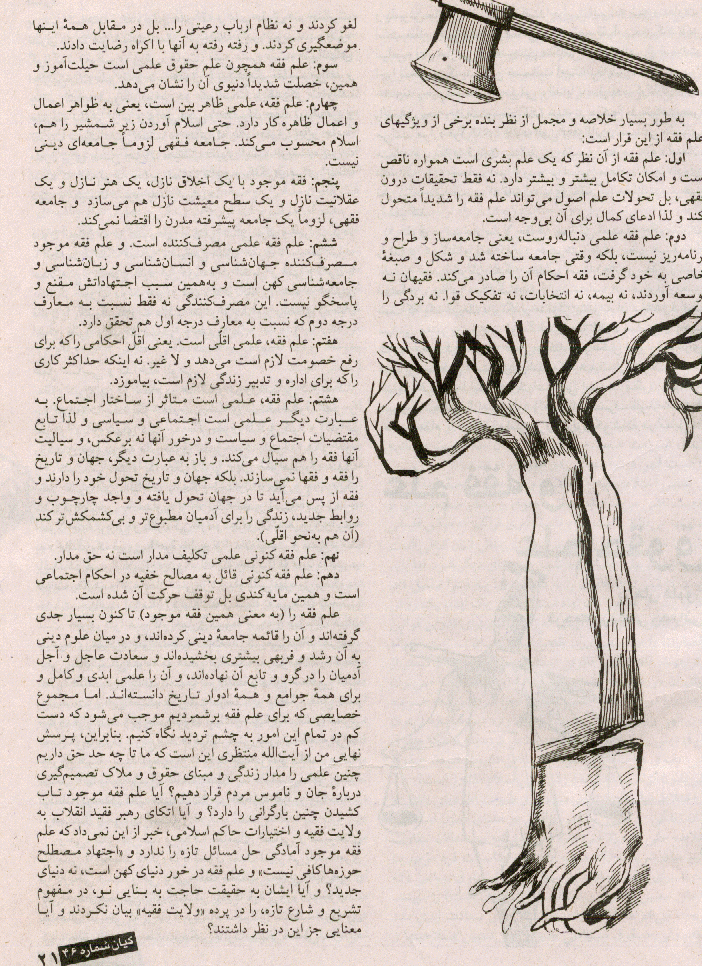 به طور بسیار خلاصه و مجمل از نظر بنده برخی از ویژگیهای
علم فقه از این قرار است:
اول: علم فقه از آن نظر که یک علم بشری است همواره ناقص
است و امکان تکامل بیشتر و بیشتر دارد. نه فقط تحقیقات درون
فقهی، بل تحولات علم اصول می‌تواند علم فقه را شدیداً متحول
کند و لذا ادعای کمال برای آن بی‌وجه است.
دوم: علم فقه علمی دنباله‌روست، یعنی جامعه‌ساز و طراح و
برنامه‌ریز نیست، بلکه وقتی جامعه ساخته شد و شکل و صبغهٔ
خاصی به خود گرفت، فقه احکام آن را صادر می‌کند. فقیهان نـه
توسعه آوردند، نه بیمه، نه انتخابات، نه تفکیک قوا. نه بردگی را
لغو کردند و نه نظام ارباب رعیتی را... بل در مـقابل همهٔ اینها
موضعگیری کردند. و رفته رفته به آنها با اکراه رضایت دادند.
سوم: علم فقه همچون علم حقوق علمی است حیلت‌آموز و
همین، خصلت شدیداً دنیوی آن را نشان می‌دهد.
چهارم: علم فقه، علمی ظاهر بین است، یعنی به ظواهر اعمال
و اعمال ظاهره کار دارد. حتی اسلام آوردن زیر شـمشیر را هـم،
اسلام محسوب مـی‌کند. جـامعه فـقهی لزومـاً جـامعه‌ای دیـنی
نیست.
پنجم: فقه موجود با یک اخلاق نازل، یک هنر نـازل و یک
عقلانیت نازل و یک سطح معیشت نازل هم می‌سازد و جـامعه
فقهی، لزوماً یک جامعه پیشرفته مدرن را اقتضا نمی‌کند.
ششم: علم فقه علمی مصرف‌کننده است. و علم فقه موجود
مـصرف‌کننده جـهان‌شناسی و انسـان‌شناسی و زبـان‌شناسی و
جامعه‌شناسی کهن است و به‌همین سـبب اجـتهاداتش مـقنع و
پاسخگو نیست. این مصرف‌کنندگی نه فقط نسبت بـه مـعارف
درجه دوم که نسبت به معارف درجه اول هم تحقق دارد.
هفتم: علم فقه، علمی اقلّی است. یعنی اقلّ احکامی را که برای
رفع خصومت لازم است می‌دهد و لا غیر. نه اینکه حداکثر کاری
را که برای اداره و تدبیر زندگی لازم است، بیاموزد.
هشتم: علم فقه، عـلمی است مـتأثر از سـاختار اجـتماع. بـه
عـبارت دیگـر عـلـمی است اجـتماعی و سـیاسی و لذا تـابع
مقتضیات اجتماع و سیاست و درخور آنها نه برعکس، و سیالیت
آنها فقه را هـم سیال می‌کند. و باز به عبارت دیگر، جهان و تاریخ
را فقه و فقها نمی‌سازند. بلکه جهان و تاریخ تحول خود را دارند و
فقه از پس می‌آید تا در جهان تحول یافته و واجد چارچـوب و
روابط جدید، زندگی را برای آدمیان مطبوع‌تر و بی‌کشمکش‌تر کند
(آن هم به‌نحو اقلّی).
نهم: علم فقه کنونی علمی تکلیف مدار است نه حق مدار.
دهم: علم فقه کنونی قائل به مصالح خفیه در احکام اجتماعی
است و همین مایه کندی بل توقف حرکت آن شده است.
علم فقه را (به معنی همین فقه موجود) تاکنون بسیار جدی
گرفته‌اند و آن را قائمه جامعهٔ دینی کرده‌اند، و در میان علوم دینی
به آن رشد و فربهی بیشتری بخشیده‌اند و سعادت عاجل و آجل
آدمیان را در گرو و تابع آن نهاده‌اند، و آن را علمی ابدی و کامل و
برای همهٔ جوامع و همهٔ ادوار تـاریخ دانسـته‌انـد. امـا مـجموع
خصایصی که برای علم فقه برشمردیم موجب می‌شود که دست
کم در تمام این امور به چشم تردید نگاه کنیم. بنابراین، پـرسش
نهایی من از آیت‌الله منتظری این است که ما تا چه حد حق داریم
چنین علمی را مدار زندگی و مبنای حقوق و ملاک تصمیم‌گیری
دربارهٔ جان و ناموس مردم قرار دهیم؟ آیا علم فقه موجود تـاب
کشیدن چنین بارگرانی را دارد؟ و آیا اتکای رهبر فقید انقلاب به
ولایت فقیه و اختیارات حاکم اسلامی، خبر از این نمی‌داد که علم
فقه موجود آمادگی حل مسائل تازه را ندارد و «اجتهاد مـصطلح
حوزه‌ها کافی نیست» و علم فقه در خور دنیای کهن است، نه دنیای
جدید؟ و آیا ایشان به حقیقت حاجت به بـنایی نـو، در مـفهوم
تشریع و شارع تازه، را در پرده «ولایت فقیه» بیان نکـردند و آیـا
معنایی جز این در نظر داشتند؟
کیان شماره ۴۶ ۲۱